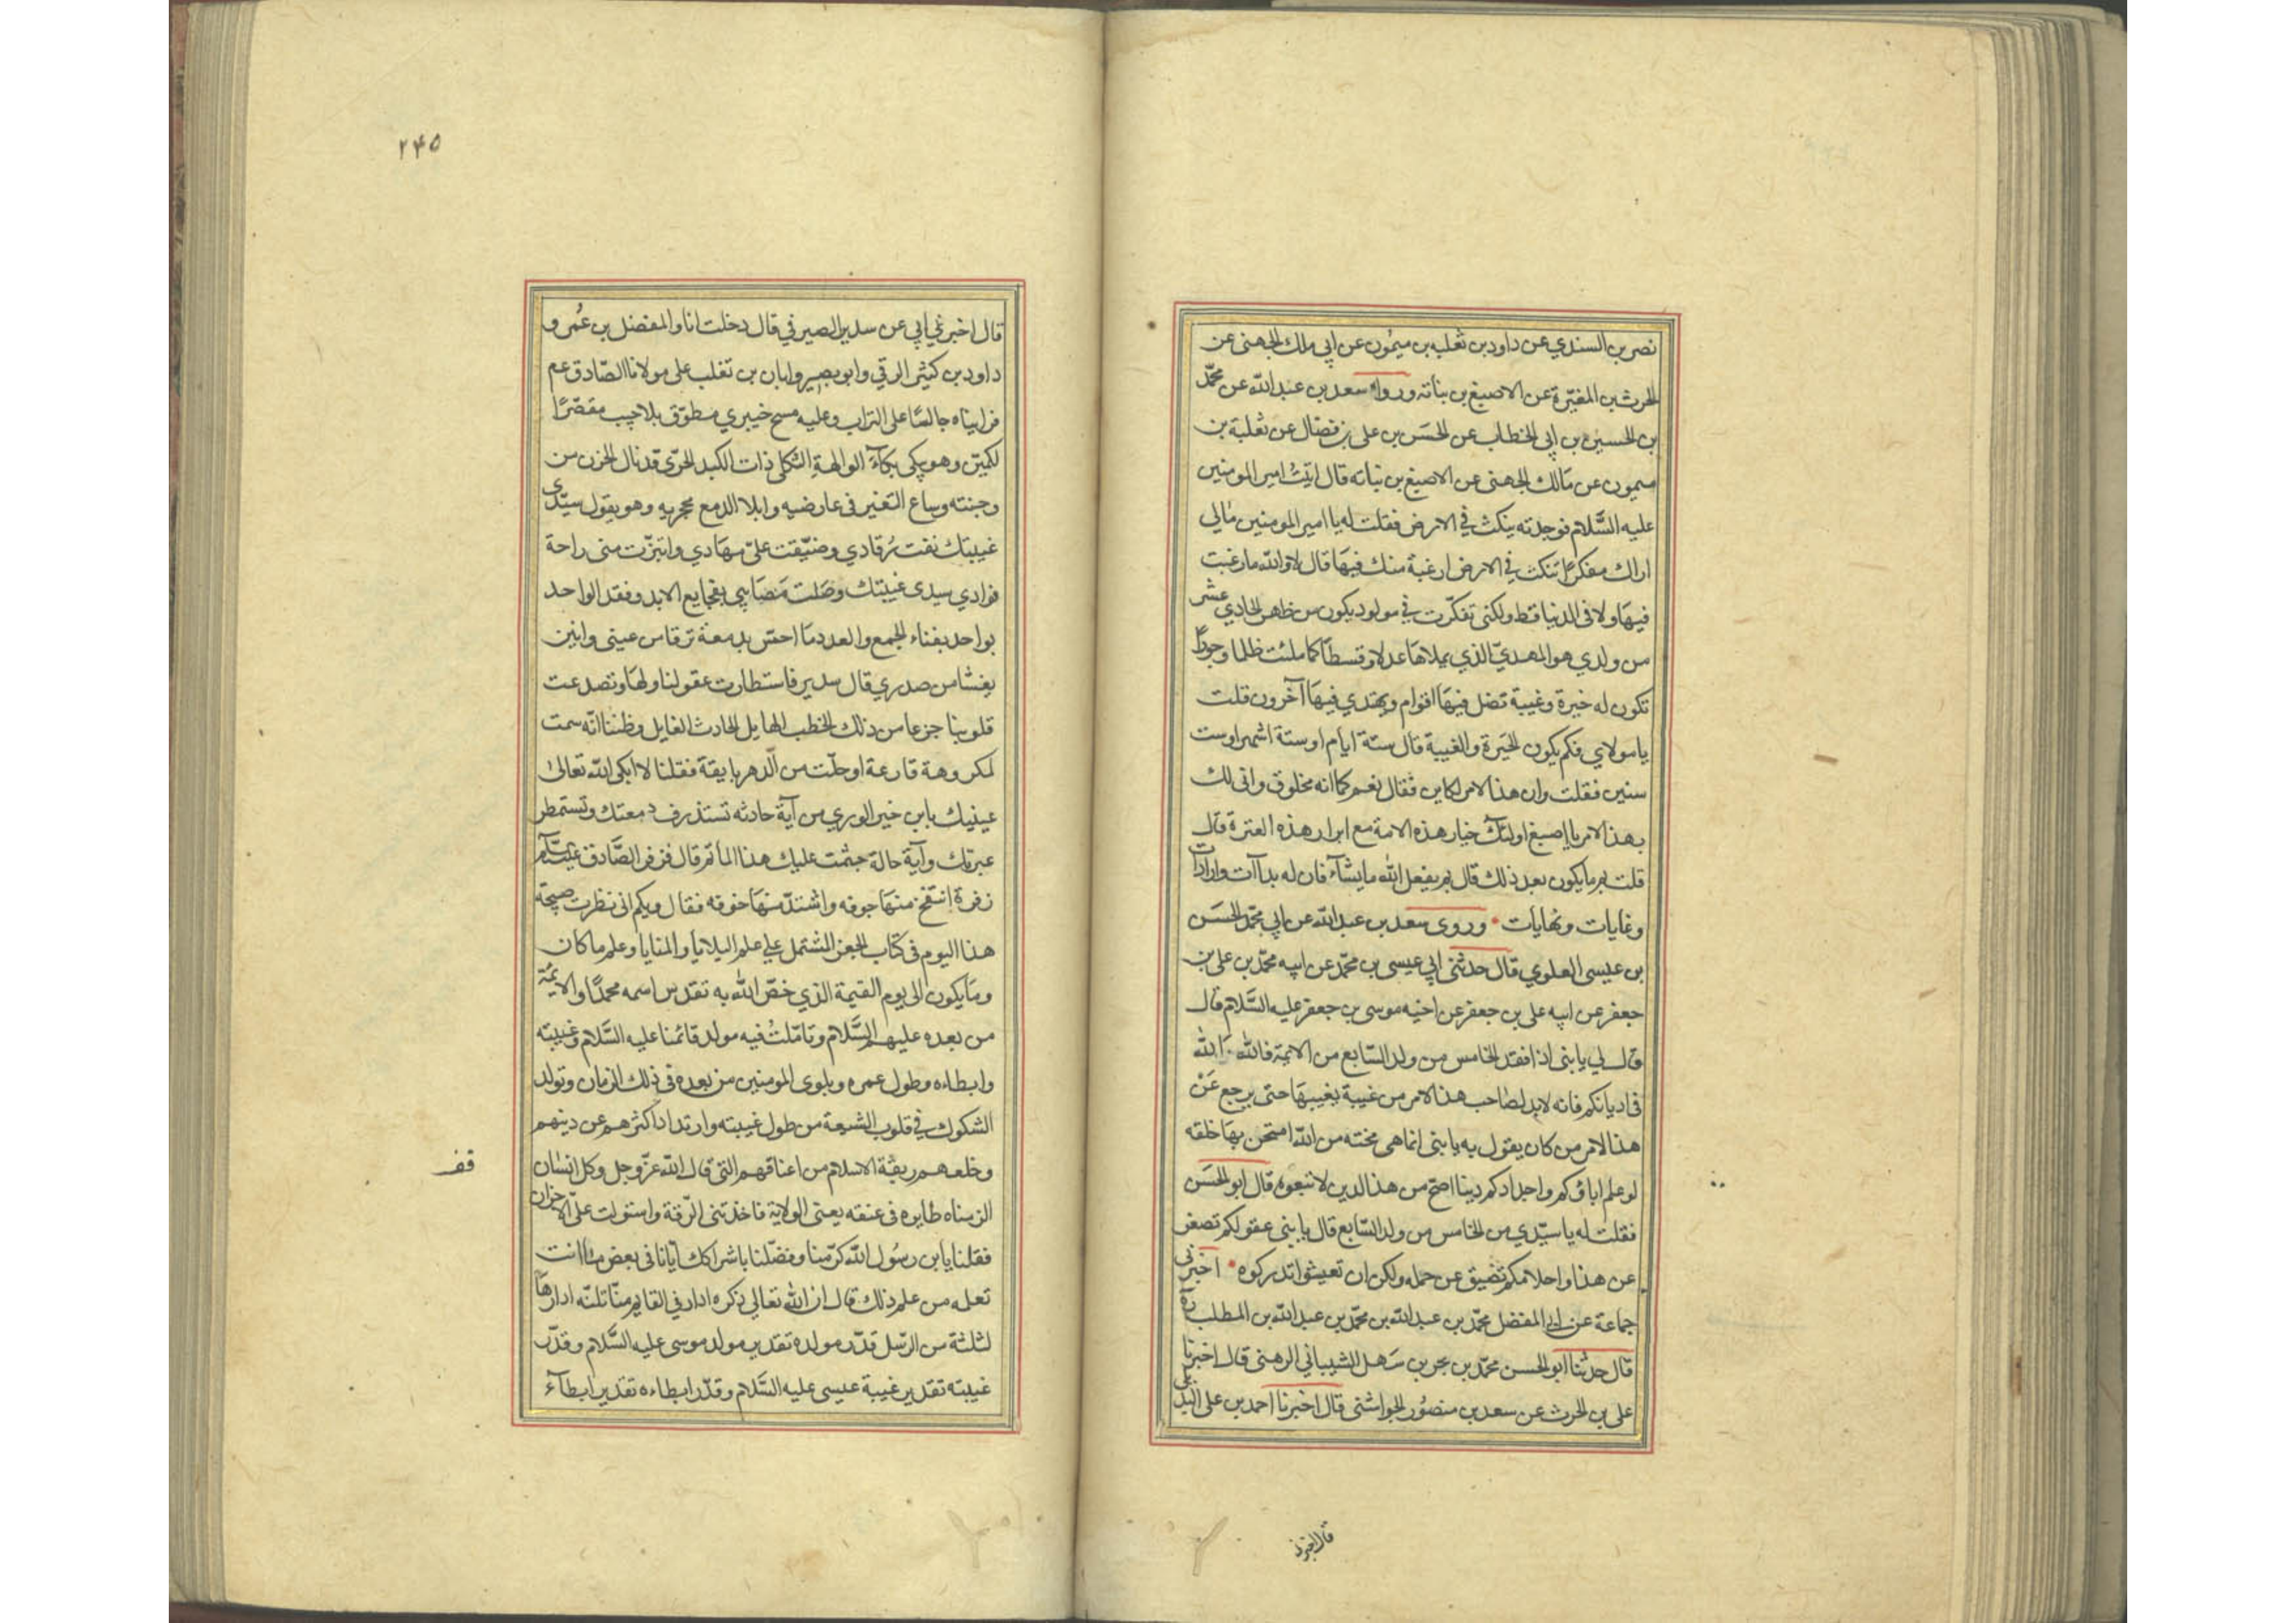 نصر بن السندي عن داود بن ثعلبه بن ميمُون عن ابي ملك الجهنى عن
الحرث بن المغيّرة عن الاصبغ بن نباته ورواه سعد بن عبد الله عن محمّد
بن الحسين بن ابى الخطاب عن الحسَن بن على بن فضال عن ثعلبة بن
ميمون عن مَالك الجهنى عن الاصبغ بن نباته قال اتيتُ امير المومنين
عليه السَّلام فوجدته ينكث في الارض فقلت له يا امير المومنين مالي
اراك مفكرًا تنكت في الارض ارغبة منك فيهَا قال لا والله ما رغبت
فيهَا ولا فى الدنيا قط ولكنى تفكّرت في مولود يكون من ظهر الحادي عشر
من ولدي هو المهديّ الذي يملاهَا عدلا وقسطاً كما ملئت ظلما وجورًا
تكون له خيرة وغيبة تضل فيهَا اقوام ويهتدي فيهَا آخرون قلت
يا مولاي فكم يكون الحَيرة والغيبة قال ستة ايام او ستة اشهر او ست
سنين فقلت وان هذا الامر لكاين فقال نعم كما انه مخلوق وانى لك
بهذا الامر يا اصبغ اولئك خيار هذه الامة مع ابرار هذه العترة قال
قلت ثم ما يكون بعد ذلك قال ثم يفعل الله ما يشآء فان له بداآت وارادات
وغايات ونهايات • وروى سعد بن عبد الله عن ابي محمّد الحسَن
بن عيسى العلوي قال حدثنى ابي عيسى بن محمّد عن ابيه محمّد بن على بن
جعفر عن ابيه على بن جعفر عن اخيه موسى بن جعفر عليه السَّلام قال
قال لي يا بنى اذا فقد الخامس من ولد السّابع من الايمة فالله الله
فى اديانكم فانه لا بد لصَاحب هذا الامر من غيبة يغيبهَا حتى يرجع عَنْ
هذا الامر من كان يقول به يا بنى انما هى محنته من الله امتحن بهَا خلقه
لو علم اباؤكم واجدادكم دينا اصح من هذا الدين لاتبعوه قال ابو الحسَن
فقلت له يا سيّدي من الخامس من ولد السّابع قال يا بني عقولكم تصغر
عن هذا واحلامكم تضيق عن حمله ولكن ان تعيشوا تدركوه • اخبرنى
جماعة عن ابى المفضل محمّد بن عبد الله بن محمّد بن عبد الله بن المطلب ره
قال حدثنا ابو الحسن محمّد بن بحر بن سَهل الشيباني الرهنى قال اخبرنا
على بن الحرث عن سعد بن منصُور الجواشنى قال اخبرنا احمد بن على البديلى
قال اخبرنى
٢٤٥
قال اخبرني ابي عن سدير الصيرفي قال دخلت انا والمفضل بن عُمر و
داود بن كثير الرقي وابو بصير وابان بن تغلب على مولانا الصّادق عم
فرايناه جالسًا على التراب وعليه مسح خيبري مطوّق بلا جيب مقصّر ا
لكمين وهو يبكى بكآء الوالهة الثكلى ذات الكبد الحرّى قد نال الحزن من
وجنته وساع التغير فى عارضيه وابلا الدمع محجريه وهو يقول سيّدى
غيبتك نفت رُقادي وضيّقت علىّ مهَادي وابتزّت منى راحة
فوادي سيدى غيبتك وصَلت مَصَايبي بفجايع الابد وفقد الواحد
بواحد بفناء الجمع والعدد مَا احسّ بدمعة ترقا من عينى وانين
يفشا من صدري قال سدير فاستطارت عقولنا ولهَا وتصدعت
قلوبنا جزعا من ذلك الخطب الهايل الحادث الغايل وظننا انّه سمت
لمكروهة قارعة او حلّت من الّدهر بايقة فقلنا لا ابكى الله تعالى
عينيك يا بن خير الوري من آية حادثه تستذرف دمعتك وتستمطر
عبرتك وآية حالة جثمت عليك هذا المأتم قال فزفر الصَّادق عليه السلم
زفرة انتفخ منهَا جوفه واشتدّ منهَا خوفه فقال ويكم انى نظرت صبيحَة
هذا اليوم فى كتاب الجفر المشتمل على علم البلايَا والمنايا وعلم ما كان
ومَا يكون الى يوم القيمة الذي خصّ الله به تقدس اسمه محمدًا والايمة
من بعده عليهم السَّلام وتامّلتُ فيه مولد قائمنا عليه السَّلام وغيبته
وابطاءه وطول عمره وبلوى المومنين من بعده فى ذلك الزمان وتولد
الشكوك في قلوب الشيعة من طول غيبته وارتداد اكثرهم عن دينهم
وخلعهم ربقة الاسلام من اعناقهم التى قال الله عزّ وجل وكل انسَان
الزمناه طايره فى عنقه يعنى الولاية فاخذتنى الرّقة واستولت علىّ الاحزان
فقلنا يا بن رسُول الله كرّمنا وفضّلنا باشراكك ايّانا فى بعض ما انت
تعلمه من علم ذلك قال ان الله تعالى ذكره ادار في القايم منّا ثلثه ادارهَا
لثلثة من الرّسل قدّر مولده تقدير مولد موسى عليه السَّلام وقدّر
غيبته تقدير غيبة عيسى عليه السَّلام وقدّر ابطاءه تقدير ابطآء
قف